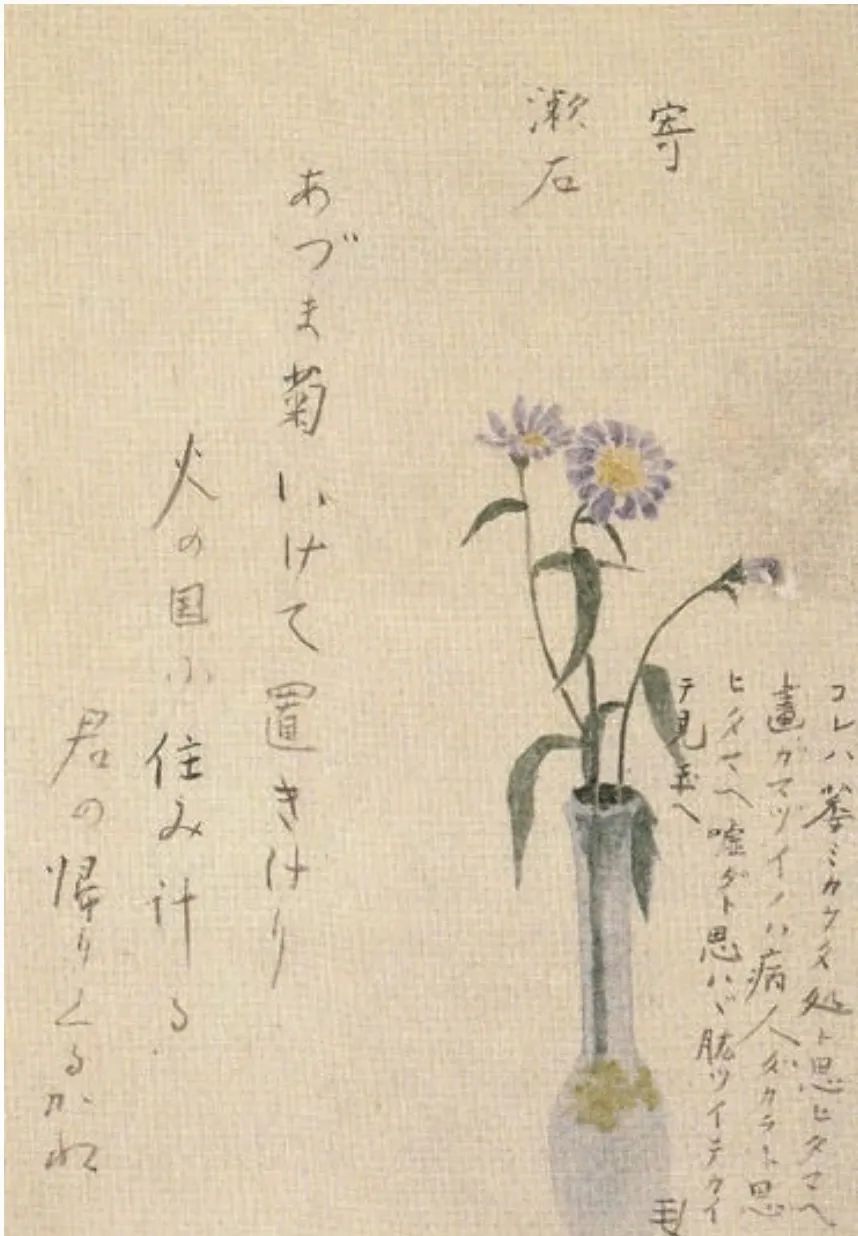 寄
漱石
コレハ萎ミカケタ処ト思ヒタマヘ
畫ガマヅイノハ病人ダカラト思
ヒタマヘ嘘ダト思ハヾ肱ツイテカイ
テ見玉ヘ
あづま菊いけて置きけり
火の国に住み計る
君の帰りくるかね